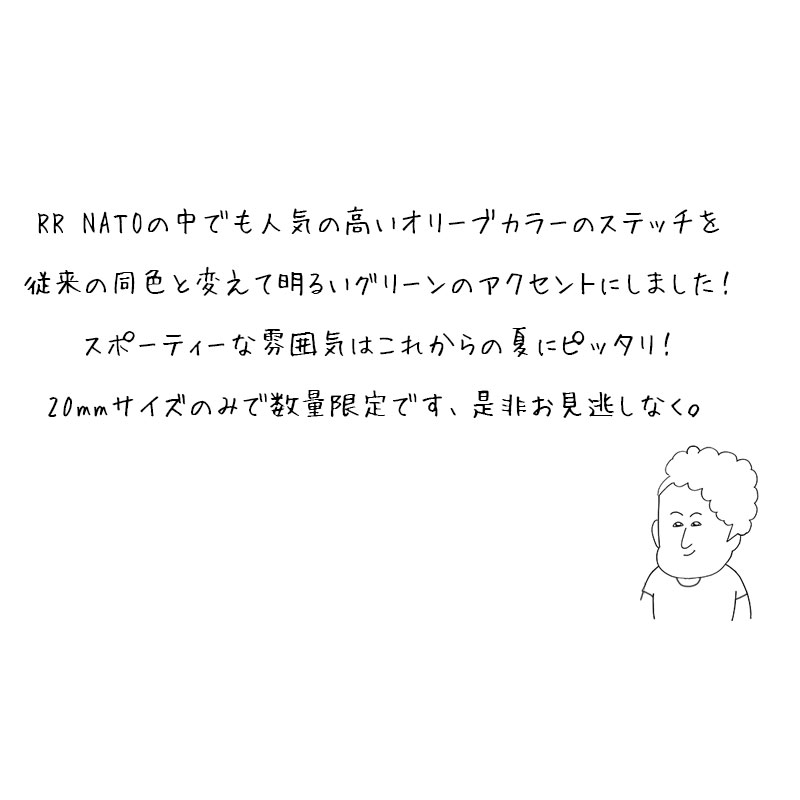 RR NATOの中でも人気の高いオリーブカラーのステッチを
従来の同色と変えて明るいグリーンのアクセントにしました!
スポーティーな雰囲気はこれからの夏にピッタリ!
20mmサイズのみで数量限定です、是非お見逃しなく。